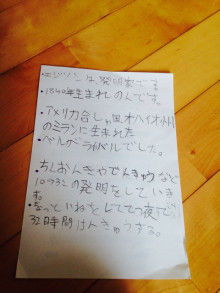 エジソンは、発明家です。
・1840年生まれのんです。
・アメリカ合しゅ国オハイオ州
のミランに生まれた
・ベルがライバルでした。
・ちくおんきやでんきゅうなど
の発明をしていま
す。
32時間けんきゅうする。